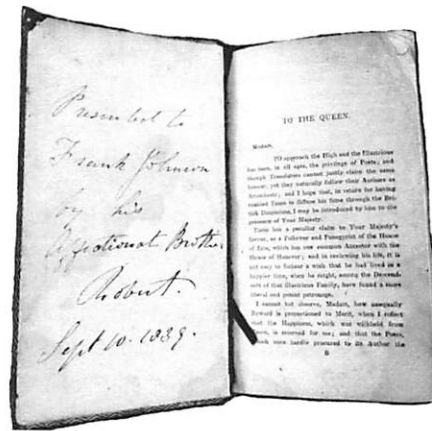 Presented to
Frank Johnson
by his
affectionat Brother
Robert.
Sept 10. 1839.
TO THE QUEEN.
Madam,
TO approach the High and the Illustrious
has been, in all ages, the privilege of Poets; and
though Translators cannot justly claim the same
honour, yet they naturally follow their Authors as
Attendants; and I hope that, in return for having
enabled Tasso to diffuse his fame through the Bri-
tish Dominions, I may be introduced by him to the
presence of Your Majesty.
Tasso has a peculiar claim to Your Majesty's
favour, as a Follower and Panegyrist of the House
of Este, which has one common Ancestor with the
House of Hanover; and in reviewing his life, it is
not easy to forbear a wish that he had lived in a
happier time, when he might, among the Descend-
ants of that Illustrious Family, have found a more
liberal and potent patronage.
I cannot but observe, Madam, how unequally
Reward is proportioned to Merit, when I reflect
that the Happiness, which was withheld from
Tasso, is reserved for me; and that the Poem,
which once hardly procured to its Author the